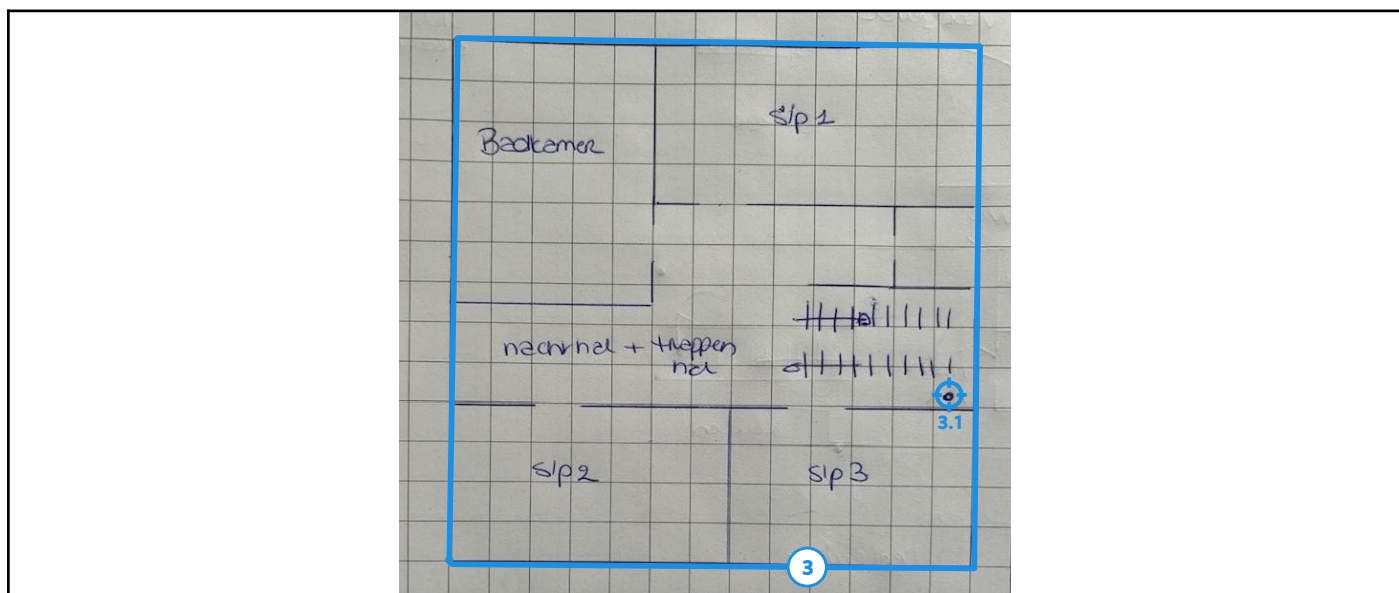 Badkamer
slp 1
nachthal + trappen
hal
slp 2
slp 3
3.1
3